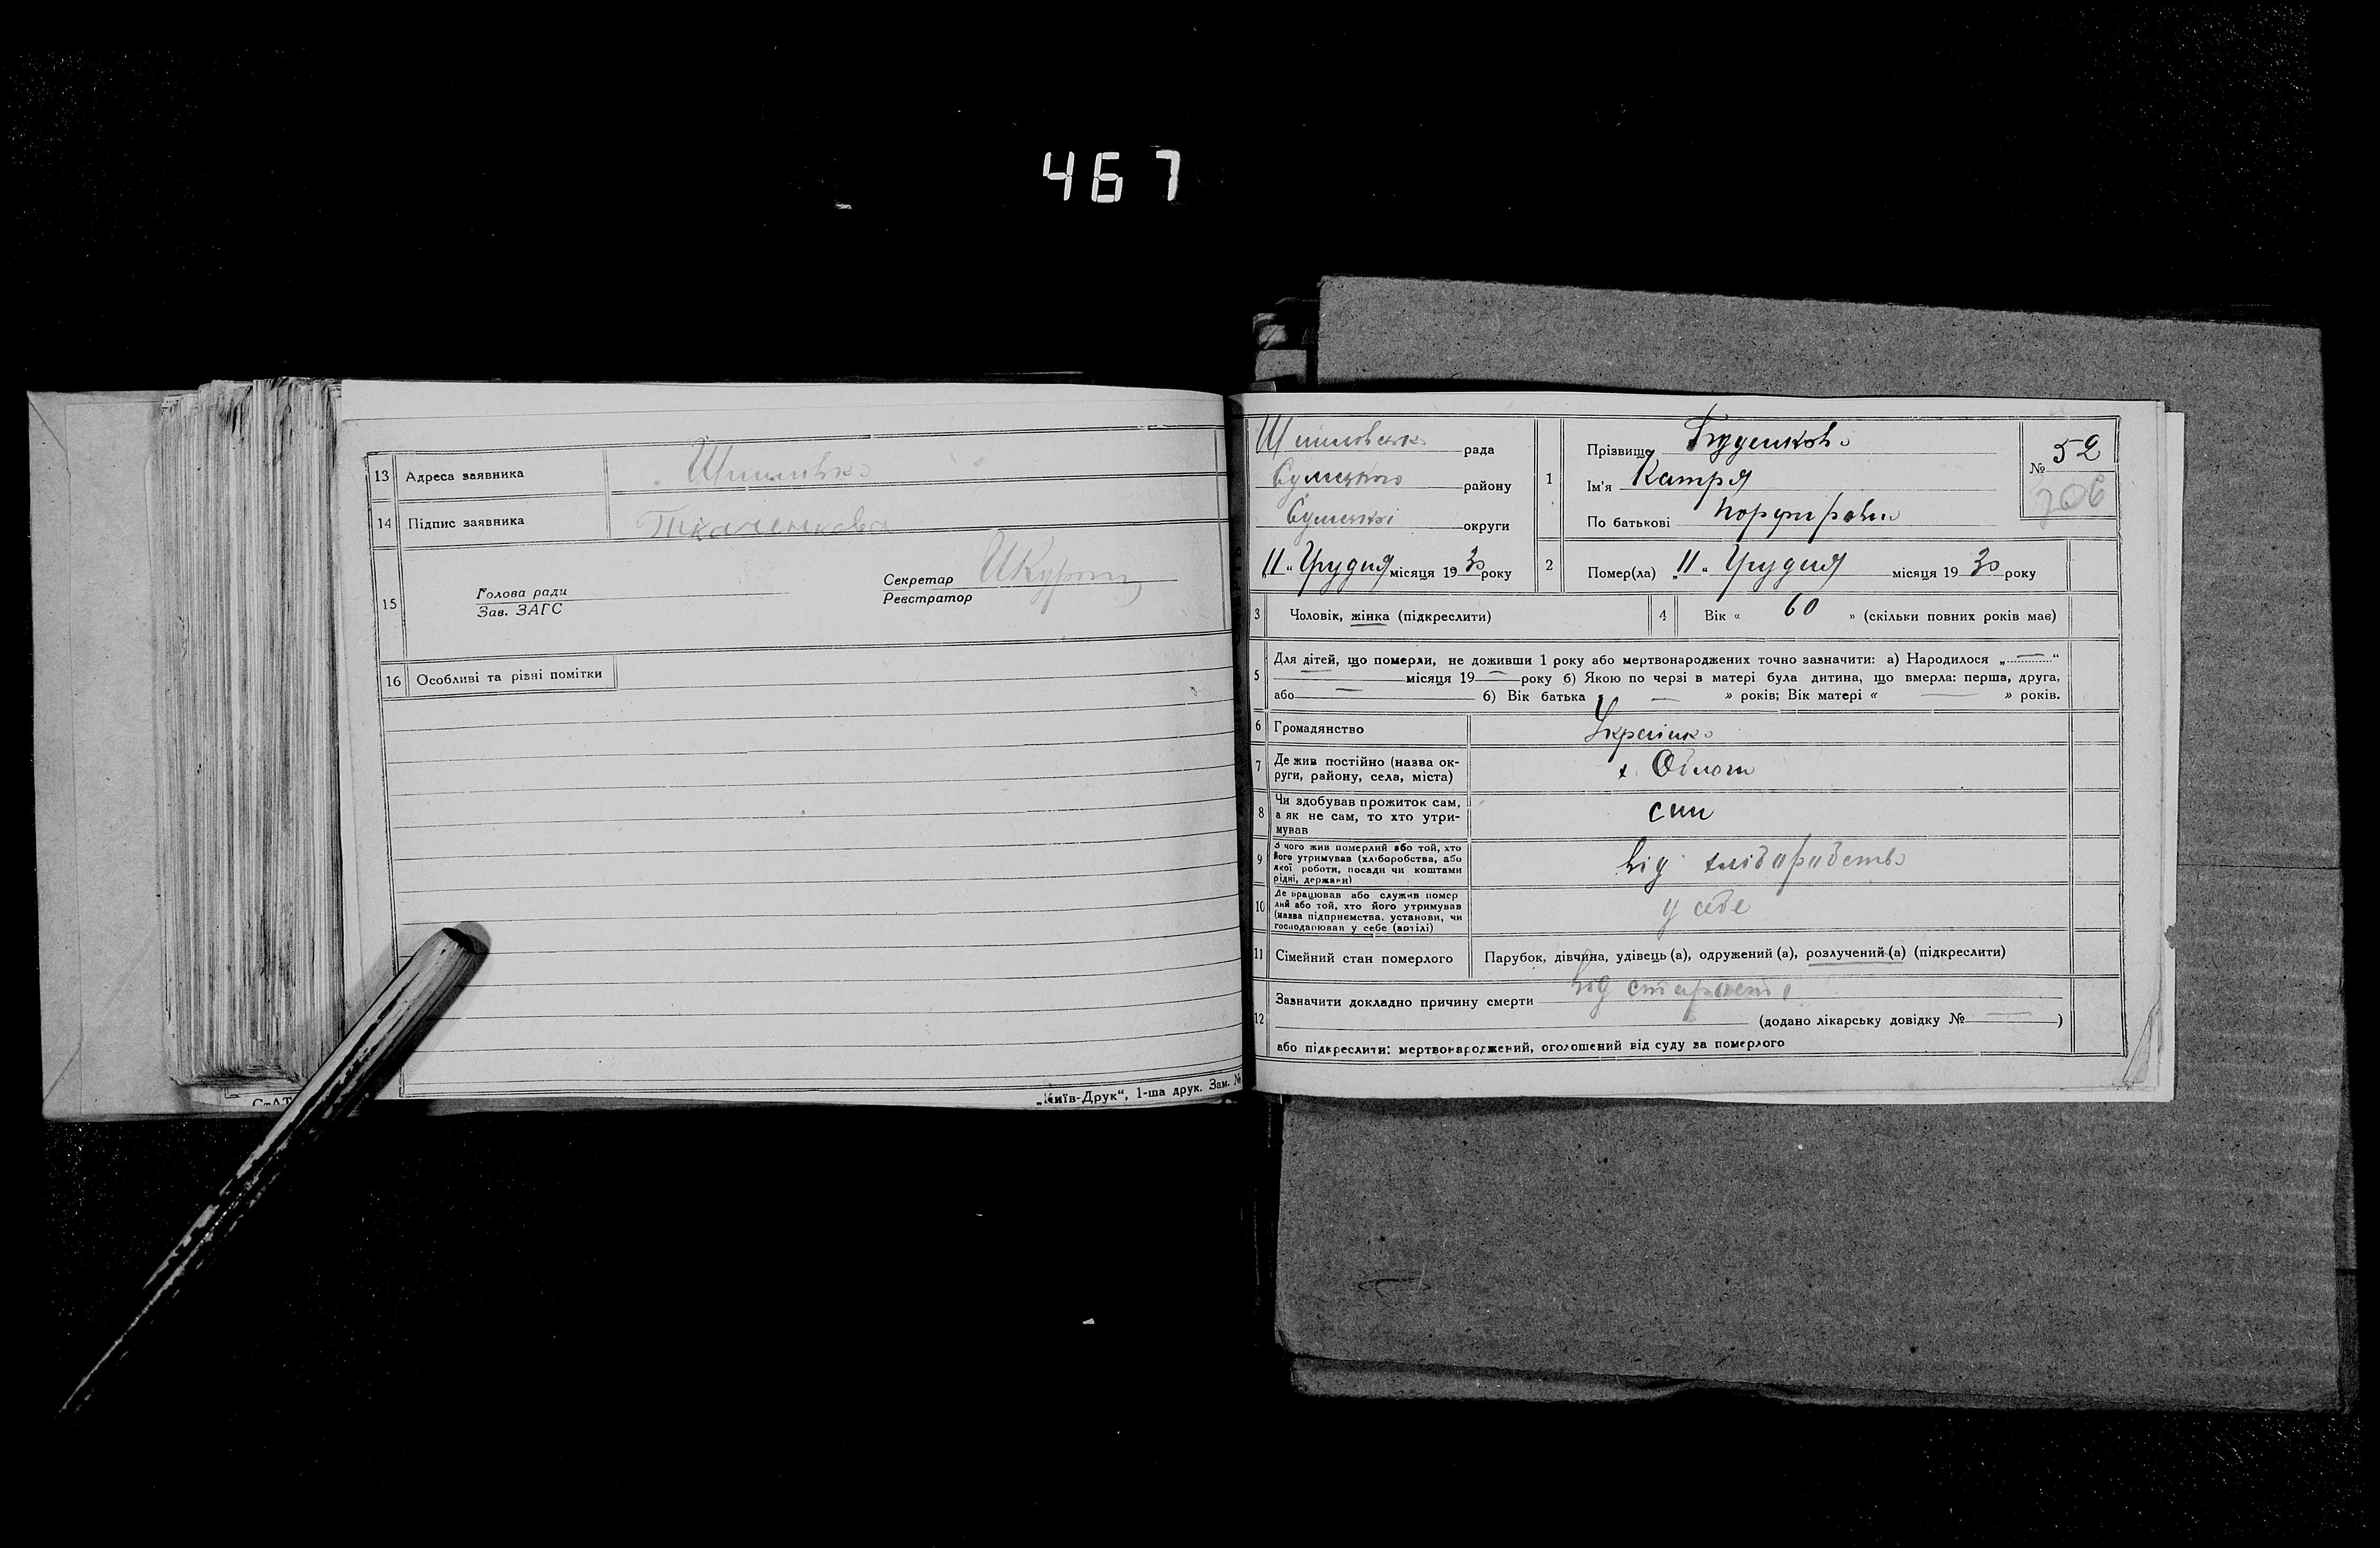 467
13 Адреса заявника Шпилівка
14 Підпис заявника Ткаченкова
15 Голова ради
Зав. ЗАГС
Секретар
Реєстратор
16 Особливі та різні помітки
„Київ-Друк“, 1-ша друк. Зам. №
рада
Сумського району
Сумської округи
„11“ Грудня місяця 1930 року
1 Прізвище
Ім'я Катря
По батькові Порфирівна
№ 52
306
2 Помер(ла) „11“ Грудня місяця 1930 року
3 Чоловік, жінка (підкреслити)
4 Вік « 60 » (скільки повних років має)
5 Для дітей, що померли, не доживши 1 року або мертвонароджених точно зазначити: а) Народилося „—“
— місяця 19— року б) Якою по черзі в матері була дитина, що вмерла: перша, друга,
або — б) Вік батька « — » років; Вік матері « — » років.
6 Громадянство Українка
7 Де жив постійно (назва ок-
руги, району, села, міста)
8 Чи здобував прожиток сам,
а як не сам, то хто утри-
мував
син
9 З чого жив померлий або той, хто
його утримував (хліборобства, або
якої роботи, посади чи коштами
рідні, держави)
від хліборобства
10 Де працював або служив помер
лий або той, хто його утримував
(назва підприємства, установи, чи
господарював у себе (артілі)
у себе
11 Сімейний стан померлого Парубок, дівчина, удівець (а), одружений (а), розлучений (а) (підкреслити)
12 Зазначити докладно причину смерти від старости
(додано лікарську довідку № — )
або підкреслити: мертвонароджений, оголошений від суду за померлого